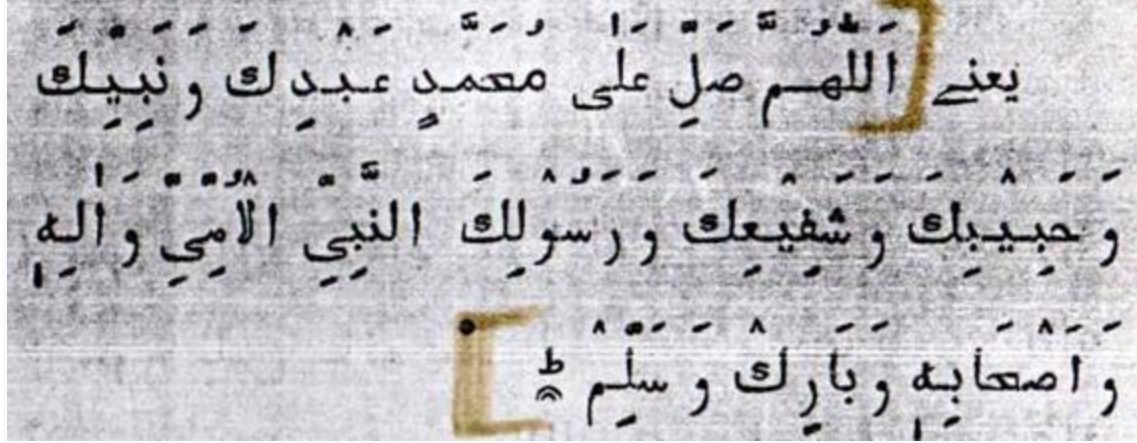 يعنے اَللّٰهُمَّ صَلِّ عَلٰى مُحَمَّدٍ عَبْدِكَ وَنَبِيِّكَ
وَحَبِيْبِكَ وَشَفِيْعِكَ وَرَسُوْلِكَ النَّبِيِّ الْاُمِّيِّ وَاٰلِهٖ
وَاَصْحَابِهٖ وَبَارِكْ وَسَلِّمْ ط